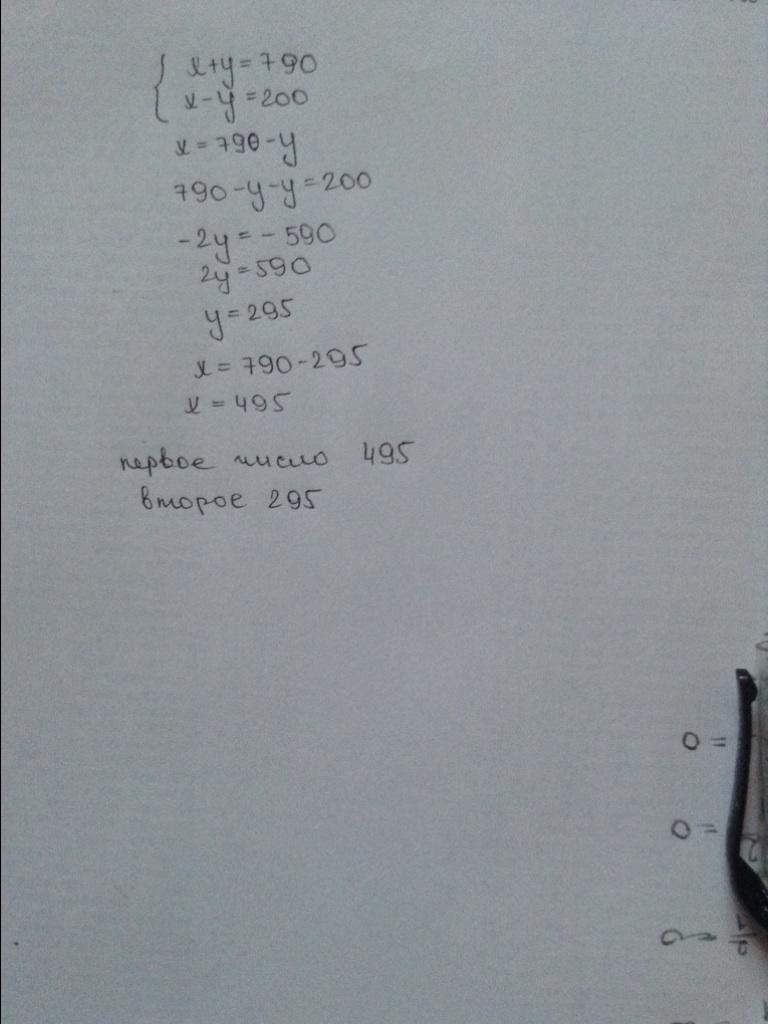 { x+y=790
x-y=200
x=790-y
790-y-y=200
-2y=-590
2y=590
y=295
x=790-295
x=495
первое число 495
второе 295
0 =
0 =